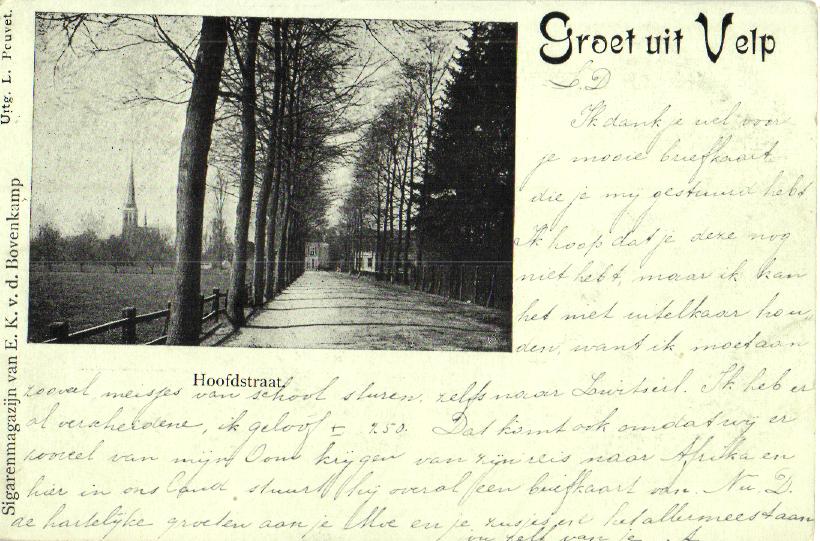 Groet uit Velp
L. D.
Ik dank je wel voor
je mooie briefkaart
die je mij gestuurd hebt
Ik hoop dat je deze nog
niet hebt, maar ik kan
het met uitelkaar hou,
den, want ik moet aan
Hoofdstraat.
zooveel meisjes van school sturen, zelfs naar Zwitserl. Ik heb er
al verscheidene, ik geloof ± 250. Dat komt ook omdat wij er
zooveel van mijn Oom krijgen van zijn reis naar Afrika en
hier in ons land stuurt hij overal een briefkaart van. Nu, D.
de hartelijke groeten aan je Moe en je zusjes en het allermeest aan
van je
Uitg. L. Peuvet.
Sigarenmagazijn van E. K. v. d. Bovenkamp